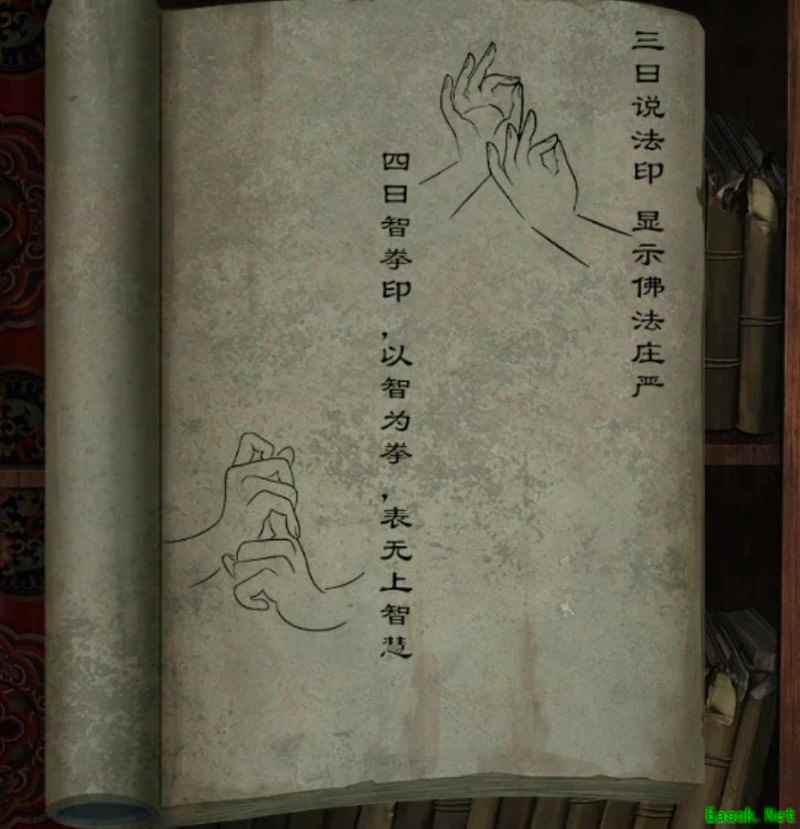 三曰说法印 显示佛法庄严
四曰智拳印，以智为拳，表无上智慧
Eaook.Net